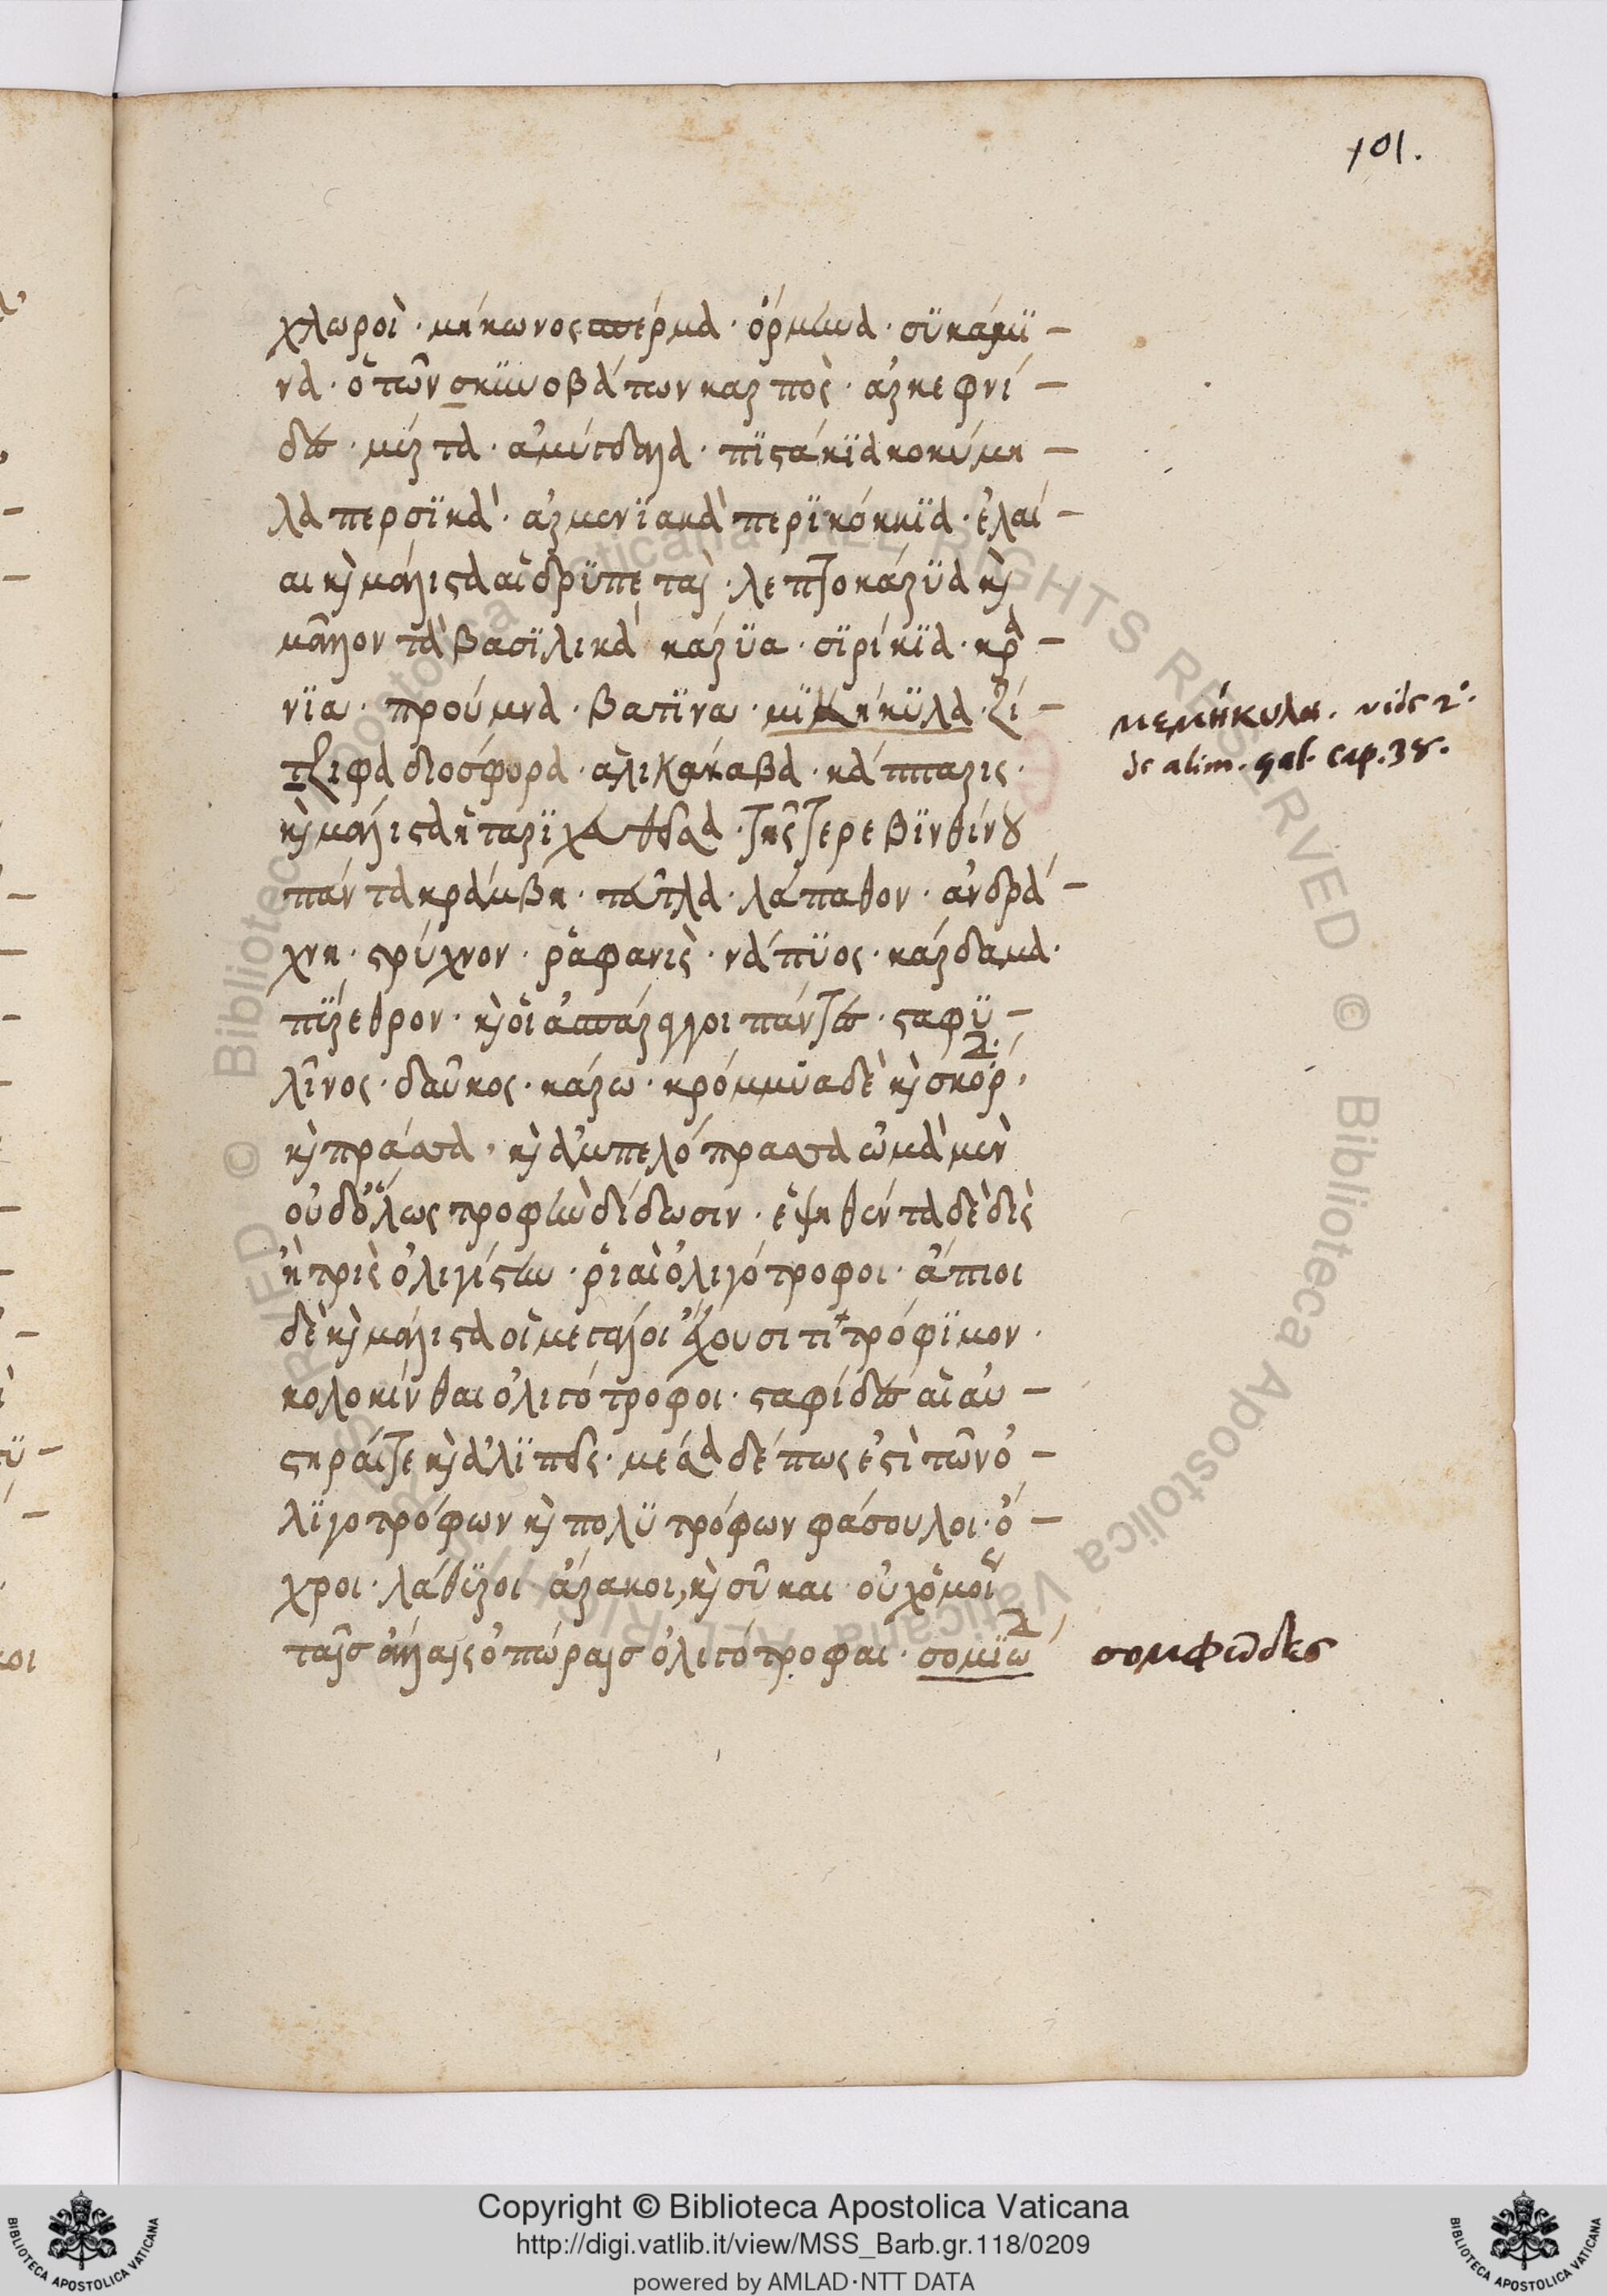 101.
χλωροὶ · μήκωνος σπέρμα · ὅρμινα · συκάμϊ —
να · ὁ τῶν σκϊνοβάτων καρπὸς · ἀρκεφνί —
δες · μύρτα · ἀμύγδαλα · πϊστάκϊα κοκύμη —
λα περσϊκὰ · ἀρμενϊακὰ περϊκόκκϊα · ἐλαί —
αι καὶ μάλιστα αἱ δρϋπεταὶ · λεπτοκάρϋα καὶ
μᾶλλον τὰ βασϊλικὰ κάρϋα · σϊρίκϊα · κρα —
νϊα · προύμνα · βατϊνα · μϊμηκϋλα · ζί —
τζιφα διοσφορα · ἁλικάκαβα · κάππαρις ·
καὶ μάλιστα ἡ ταρϊχευθεῖσα · τῆς τερεβϊνθίνου
πάντα κράμβη · τεῦτλα · λάπαθον · ἀνδρά —
χνη · στρύχνον · ῥαφανὶς · νάπϋος · κάρδαμα ·
πύρεθρον · καὶ οἱ ἀσπάραγοι πάντες · σταφϋ —
λῖνος · δαῦκος · κάρω · κρόμμϋα δὲ καὶ σκόρδα,
καὶ πράσα, καὶ ἀμπελόπρασα ὠμὰ μὲν
οὐδόλως τροφὴν δίδωσιν · ἑψηθέντα δὲ δὶς
ἢ τρὶς ὀλιγίστην · ῥοιαὶ ὀλιγότροφοι · ἄπιοι
δὲ καὶ μάλιστα οἱ μεγάλοι ἔχουσι τὶ τρόφϊμον ·
κολοκύνθαι ὀλιγότροφοι · σταφίδες αἱ αὐ —
στηραί τε καὶ ἀλϊπεῖς · μέσα δέ πως ἐστὶ τῶν ὀ —
λϊγοτρόφων καὶ πολϋτρόφων φάσουλοι · ὄ —
χροι · λάθϋροι ἄρακοι, καὶ σῦκαι οὐχ ὁμοίως
ταῖς ἄλλαις ὀπώραις ὀλιγότροφαι · σομϊωδ
μεμήκυλα. vide 2°.
de alim. gal. cap. 38.
σομφῶδες
Copyright © Biblioteca Apostolica Vaticana
http://digi.vatlib.it/view/MSS_Barb.gr.118/0209
powered by AMLAD·NTT DATA
BIBLIOTECA APOSTOLICA VATICANA
BIBLIOTECA APOSTOLICA VATICANA